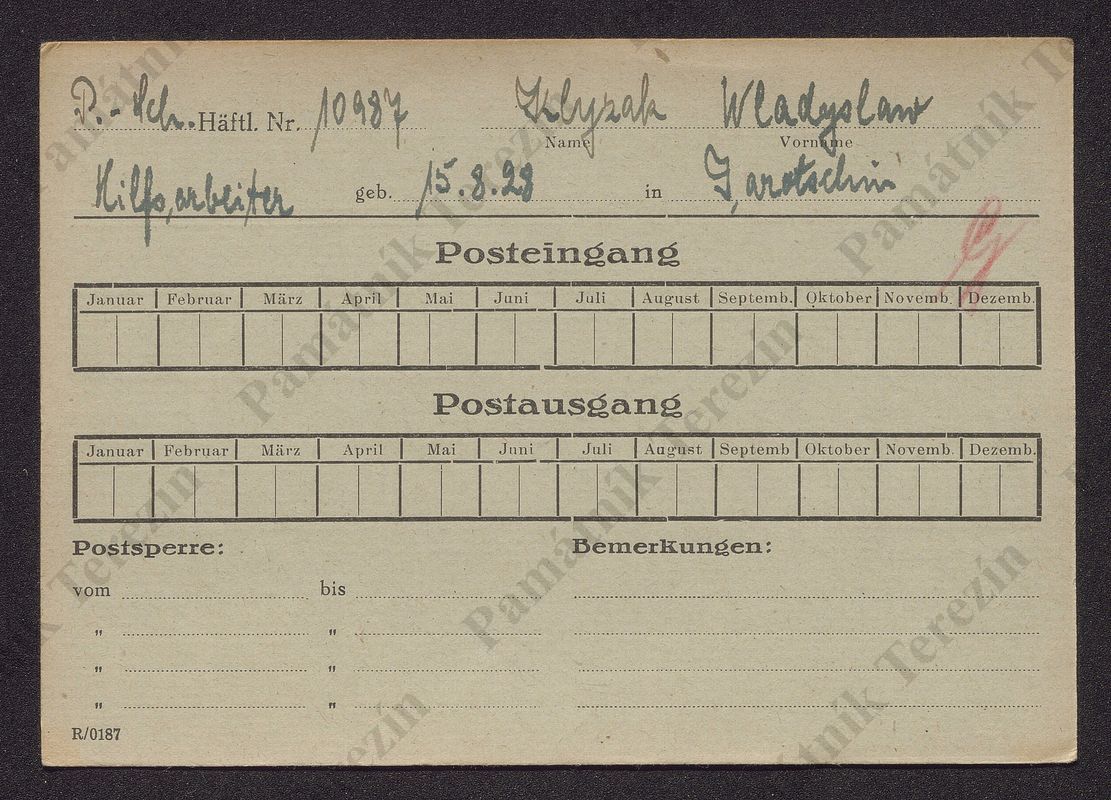 P.-Sch. Häftl. Nr. 10987 Klyzak Wladyslaw
Name Vorname
Hilfsarbeiter geb. 15.8.23 in Jarotschin
Posteingang
Januar Februar März April Mai Juni Juli August Septemb. Oktober Novemb. Dezemb.
Postausgang
Januar Februar März April Mai Juni Juli August Septemb Oktober Novemb. Dezemb.
Postsperre: Bemerkungen:
vom bis
" "
" "
" "
R/0187
Památník Terezín